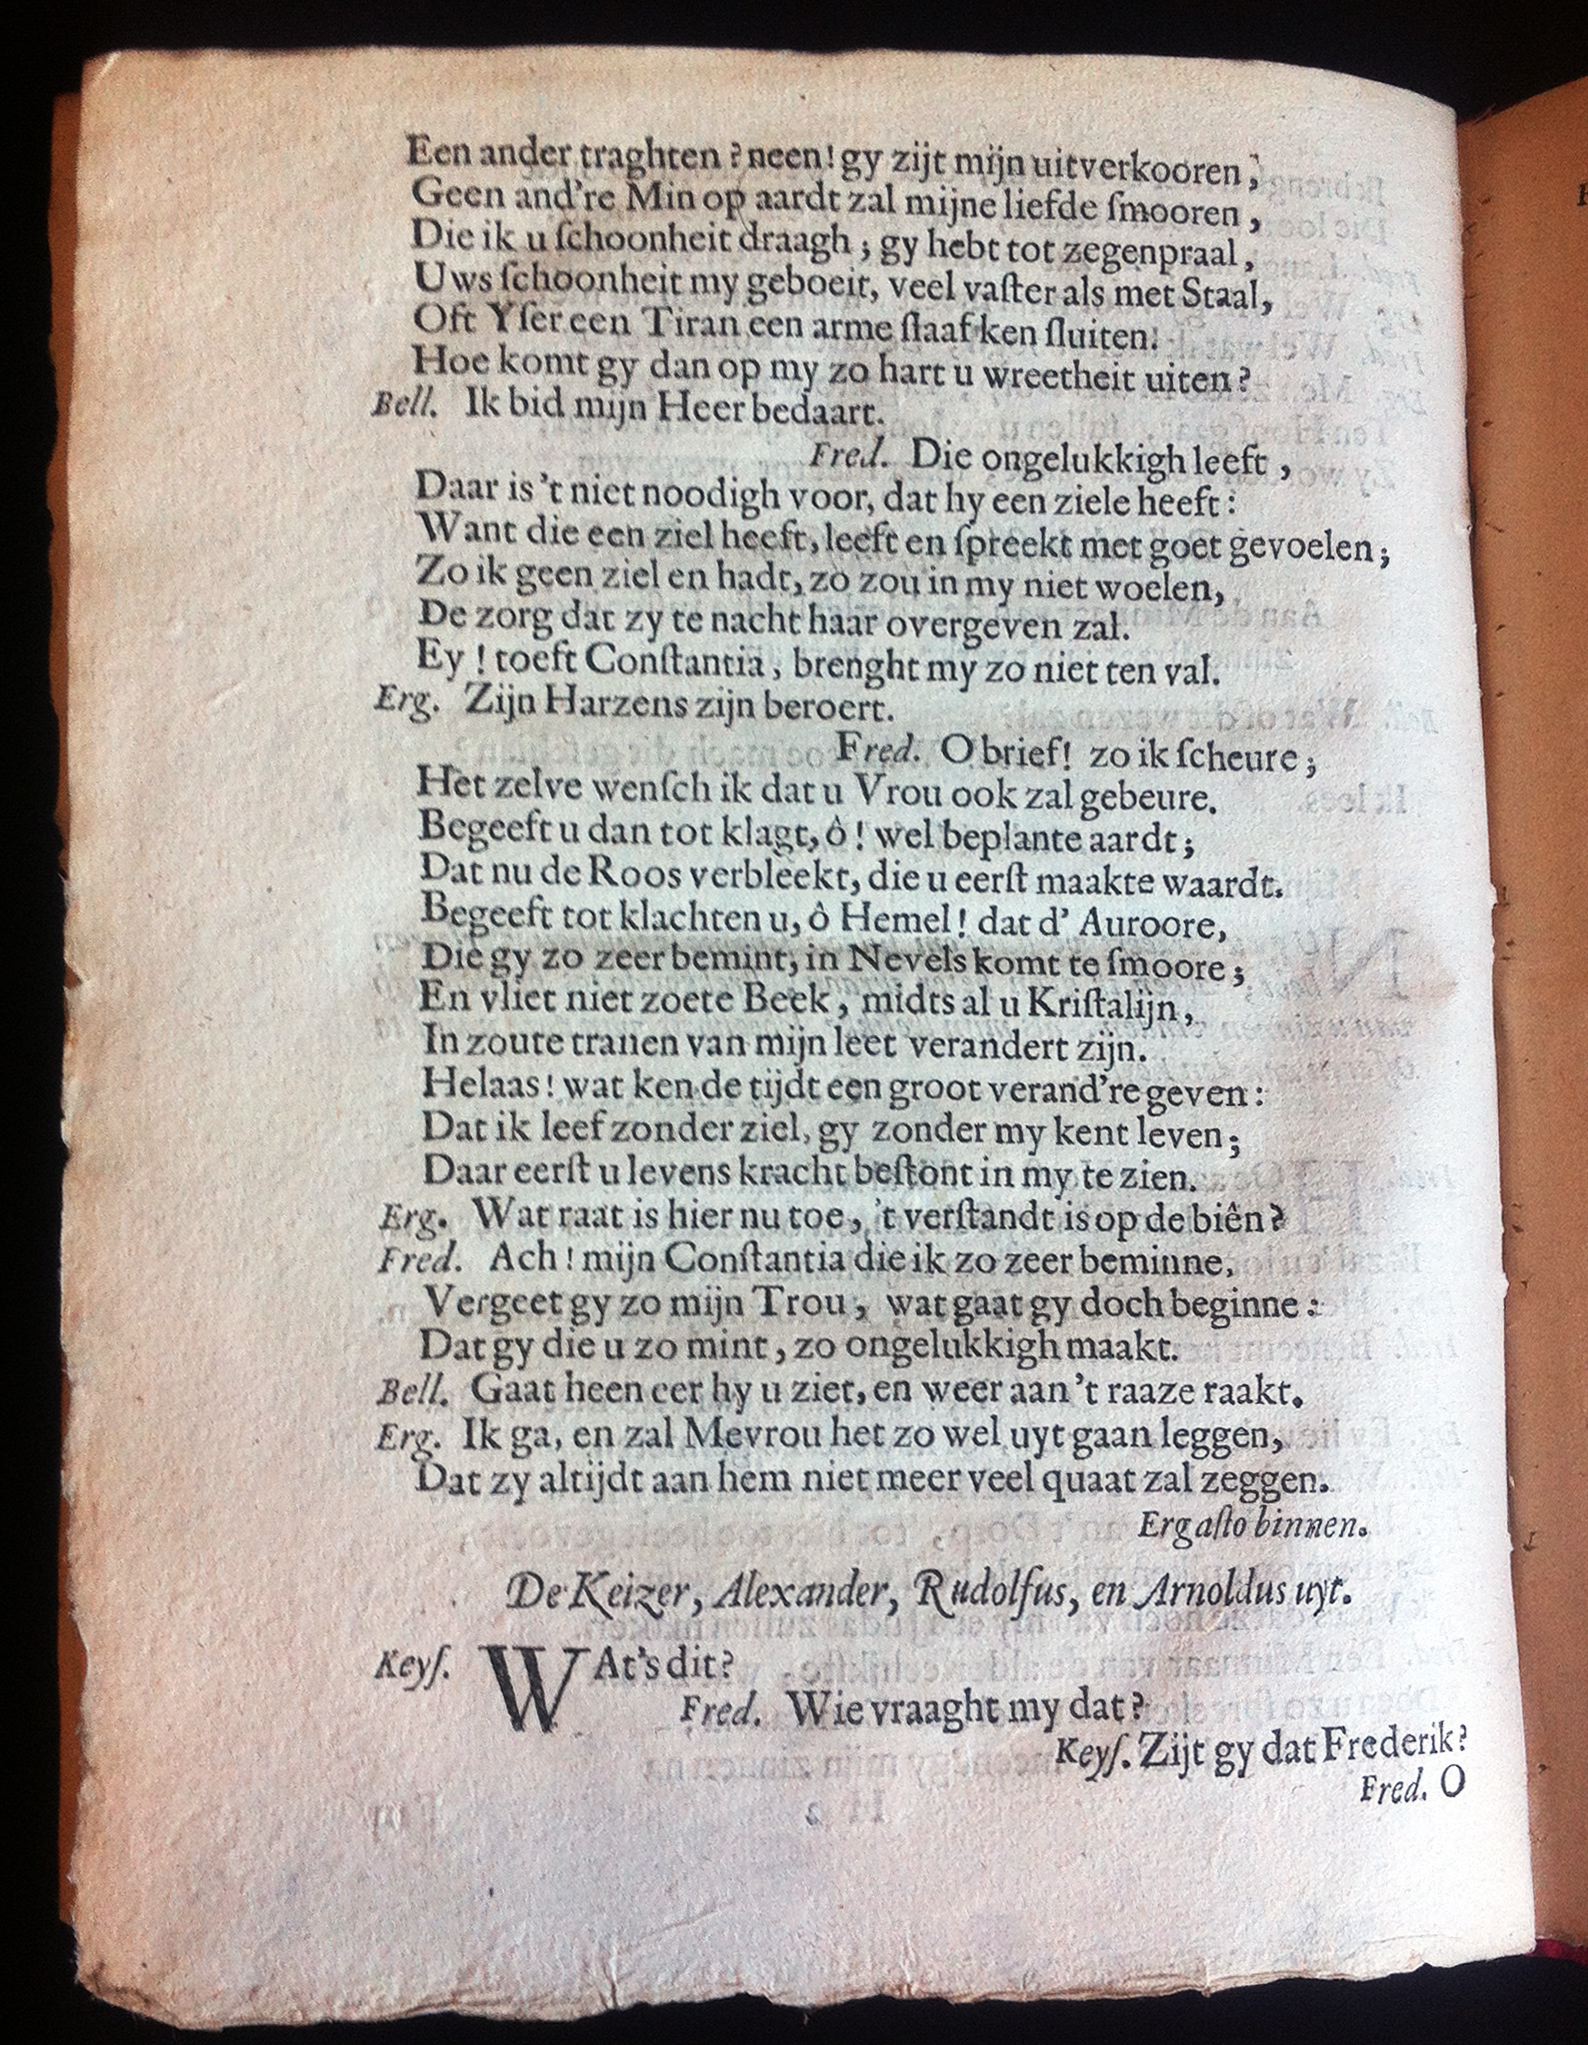 Een ander traghten? neen! gy zijt mijn uitverkooren,
Geen and're Min op aardt zal mijne liefde ſmooren,
Die ik u ſchoonheit draagh; gy hebt tot zegenpraal,
Uws ſchoonheit my geboeit, veel vaſter als met Staal,
Oft Yſer een Tiran een arme ſlaaf ken ſluiten.
Hoe komt gy dan op my zo hart u wreetheit uiten?
Bell. Ik bid mijn Heer bedaart.
Fred. Die ongelukkigh leeft,
Daar is 't niet noodigh voor, dat hy een ziele heeft:
Want die een ziel heeft, leeft en ſpreekt met goet gevoelen;
Zo ik geen ziel en hadt, zo zou in my niet woelen,
De zorg dat zy te nacht haar overgeven zal.
Ey! toeft Conſtantia, brenght my zo niet ten val.
Erg. Zijn Harzens zijn beroert.
Fred. O brief! zo ik ſcheure;
Het zelve wenſch ik dat u Vrou ook zal gebeure.
Begeeft u dan tot klagt, ô! wel beplante aardt;
Dat nu de Roos verbleekt, die u eerſt maakte waardt.
Begeeft tot klachten u, ô Hemel! dat d' Auroore,
Die gy zo zeer bemint, in Nevels komt te ſmoore;
En vliet niet zoete Beek, midts al u Kriſtalijn,
In zoute tranen van mijn leet verandert zijn.
Helaas! wat ken de tijdt een groot verand're geven:
Dat ik leef zonder ziel, gy zonder my kent leven;
Daar eerſt u levens kracht beſtont in my te zien.
Erg. Wat raat is hier nu toe, 't verſtandt is op de biên?
Fred. Ach! mijn Conſtantia die ik zo zeer beminne,
Vergeet gy zo mijn Trou, wat gaat gy doch beginne:
Dat gy die u zo mint, zo ongelukkigh maakt.
Bell. Gaat heen eer hy u ziet, en weer aan 't raaze raakt.
Erg. Ik ga, en zal Mevrou het zo wel uyt gaan leggen,
Dat zy altijdt aan hem niet meer veel quaat zal zeggen.
Ergaſto binnen.
De Keizer, Alexander, Rudolfus, en Arnoldus uyt.
Keyſ. WAt's dit?
Fred. Wie vraaght my dat?
Keyſ. Zijt gy dat Frederik?
Fred. O